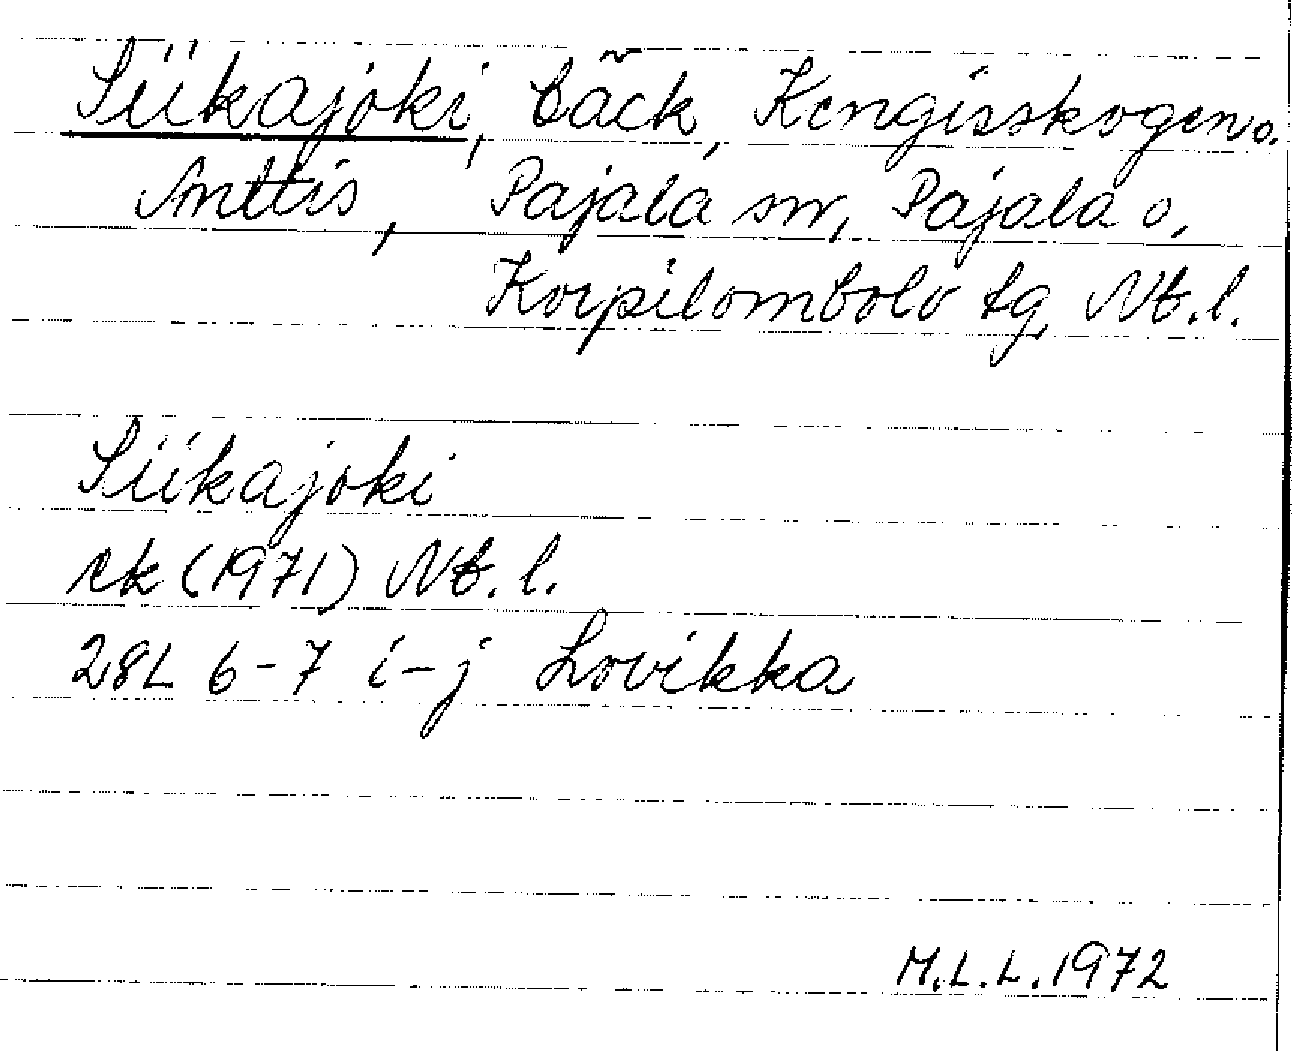 Siikajoki, bäck, Kengisskogen o.
Anttis, Pajala sn, Pajala o,
Korpilombolo tg, Nb.l.
Siikajoki
rk (1971) Nb.l.
28L 6-7 i-j Lovikka
M.L.L. 1972